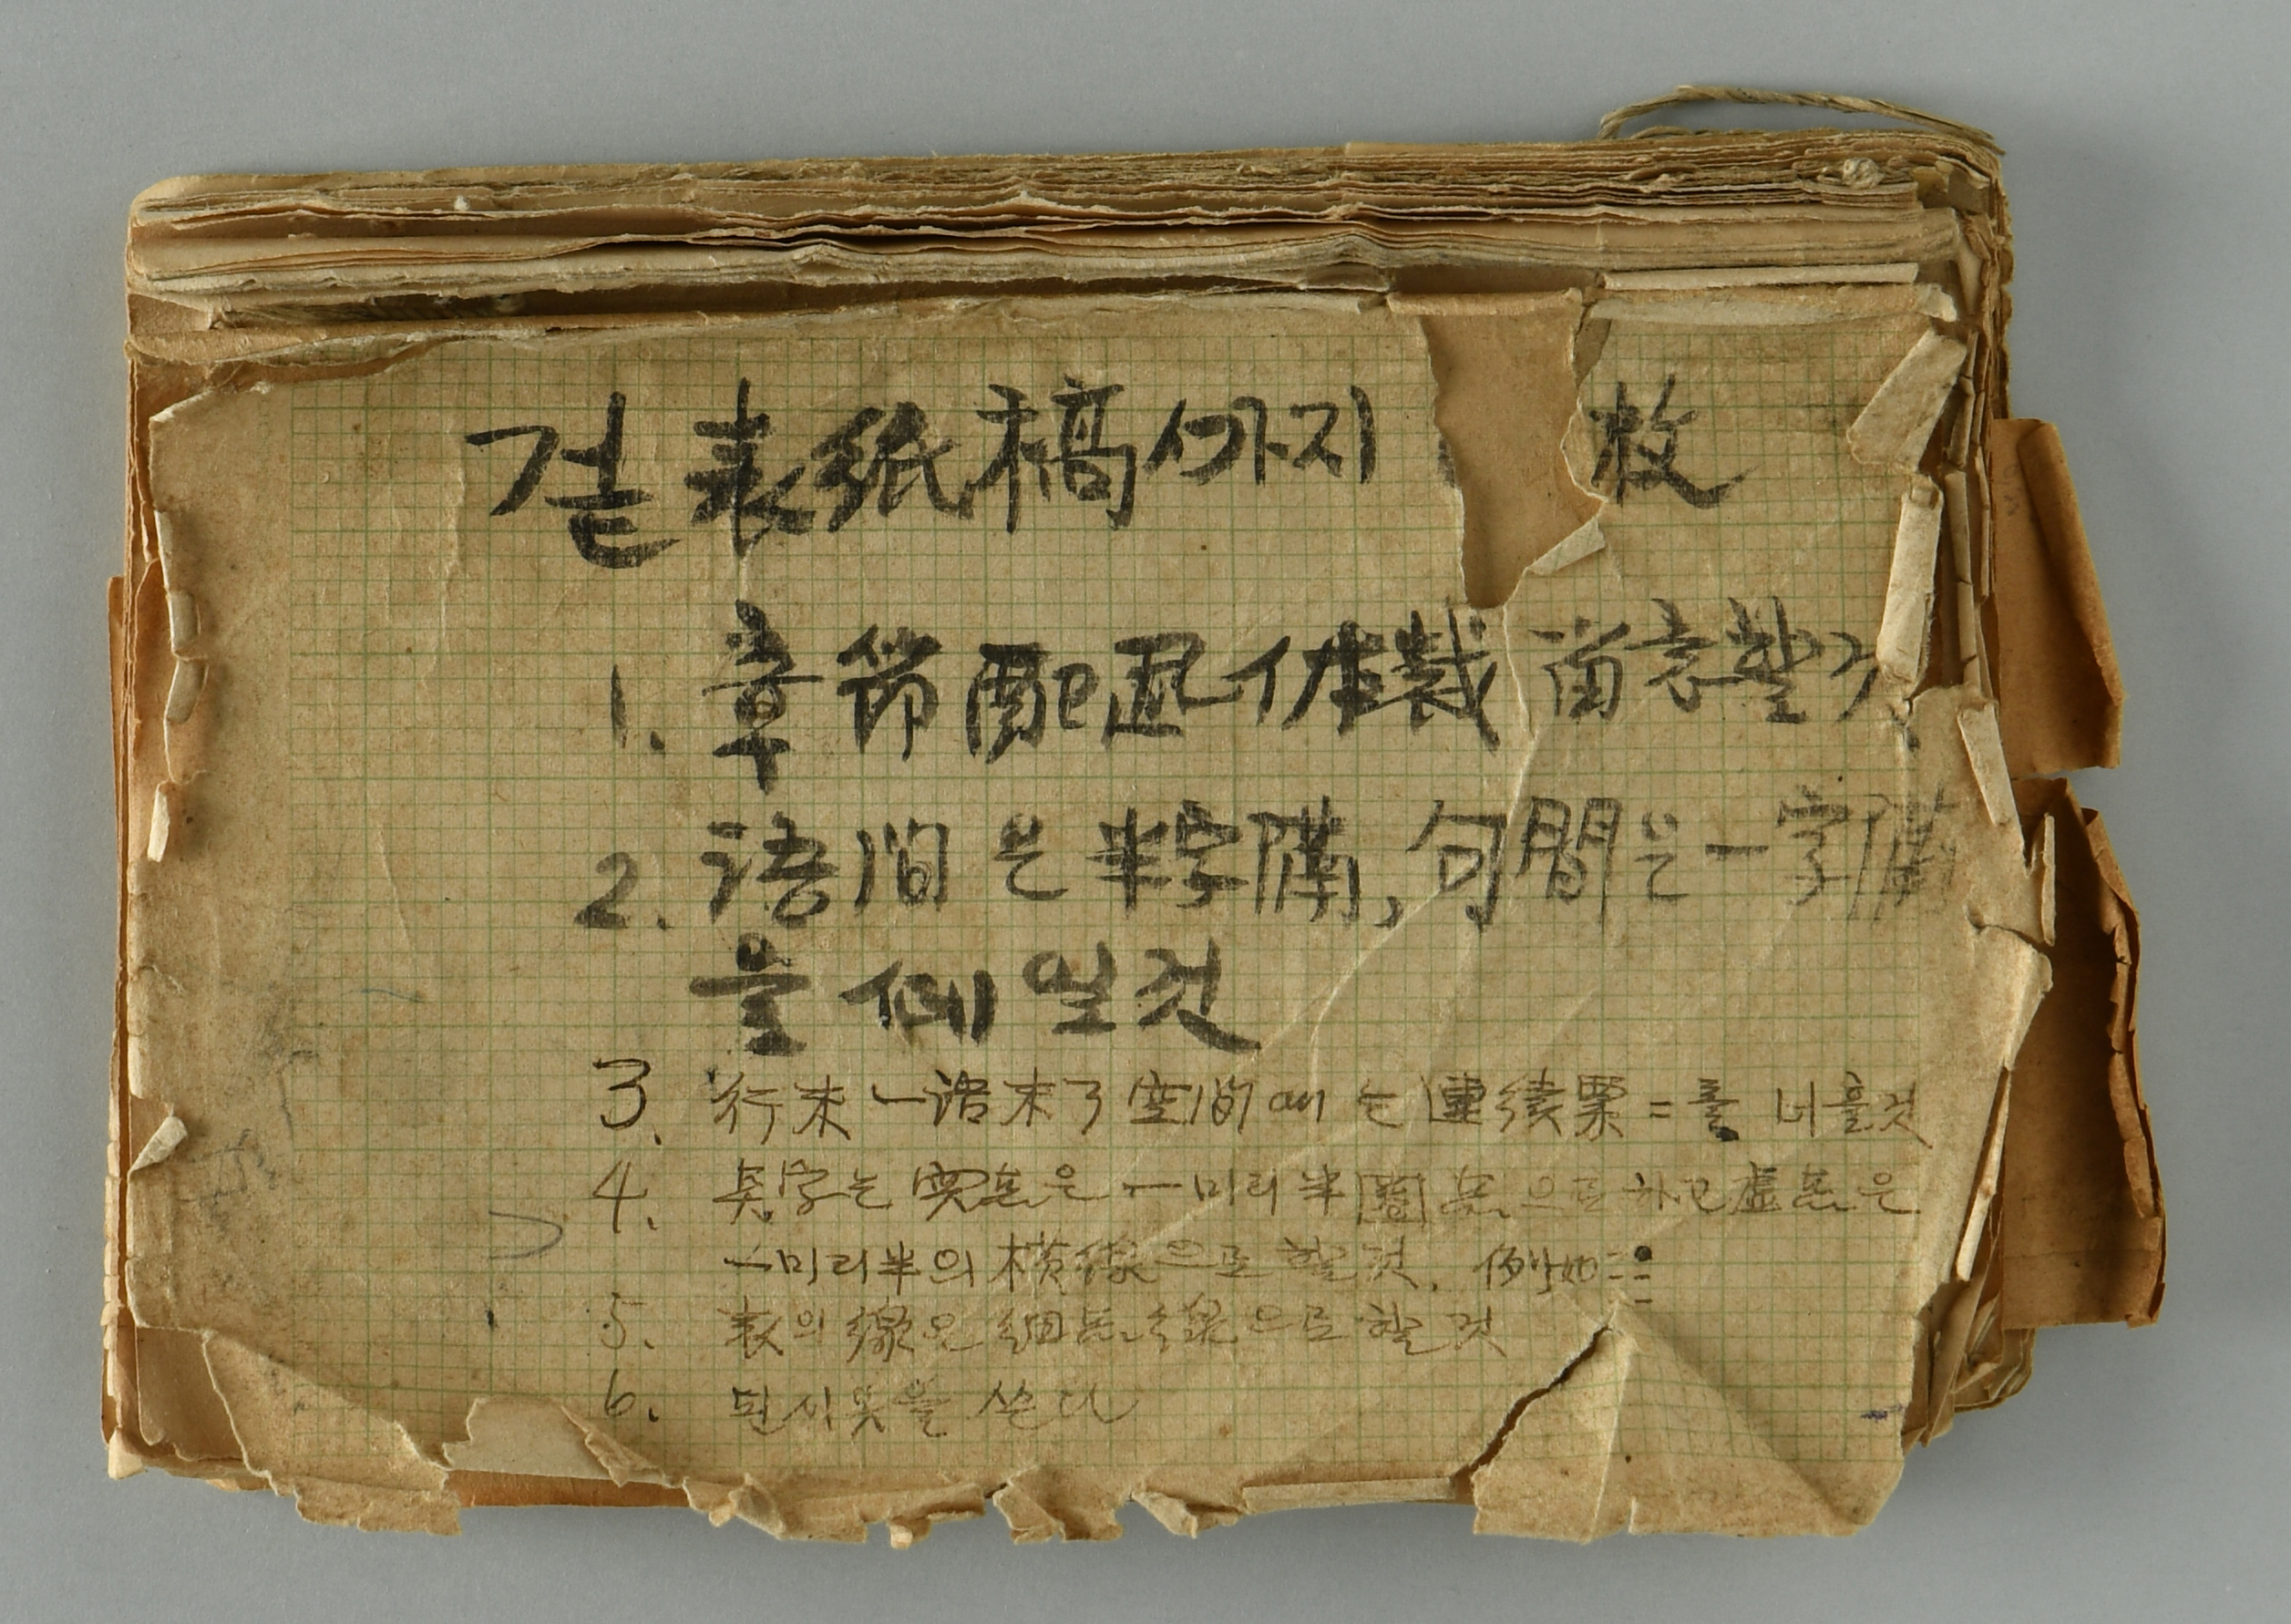 겉表紙稿ᄭᅡ지 枚
1. 章節配置体裁
2. 語間은 半字隣, 句間은 一字隣
을 𠆤일것
3. 行末一語未了空間에는 連續票=를 너흘것
4. 長字는 實点은 一미리半圈点으로하고 虛点은
一미리半의 橫線으로할것. 例如
5. 表의 線은 細点線으로할것
6. 된시옷을 쓴다